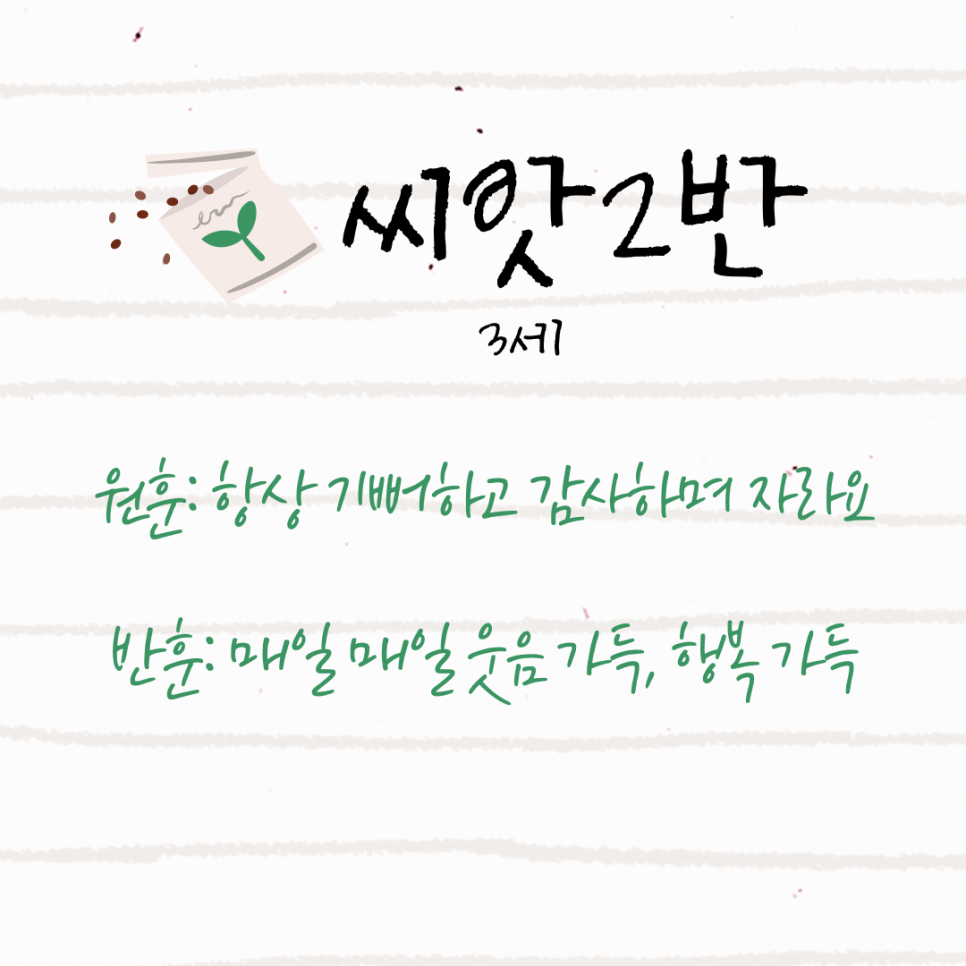 씨앗2반
3세
원훈: 항상 기뻐하고 감사하며 자라요
반훈: 매일 매일 웃음 가득, 행복 가득